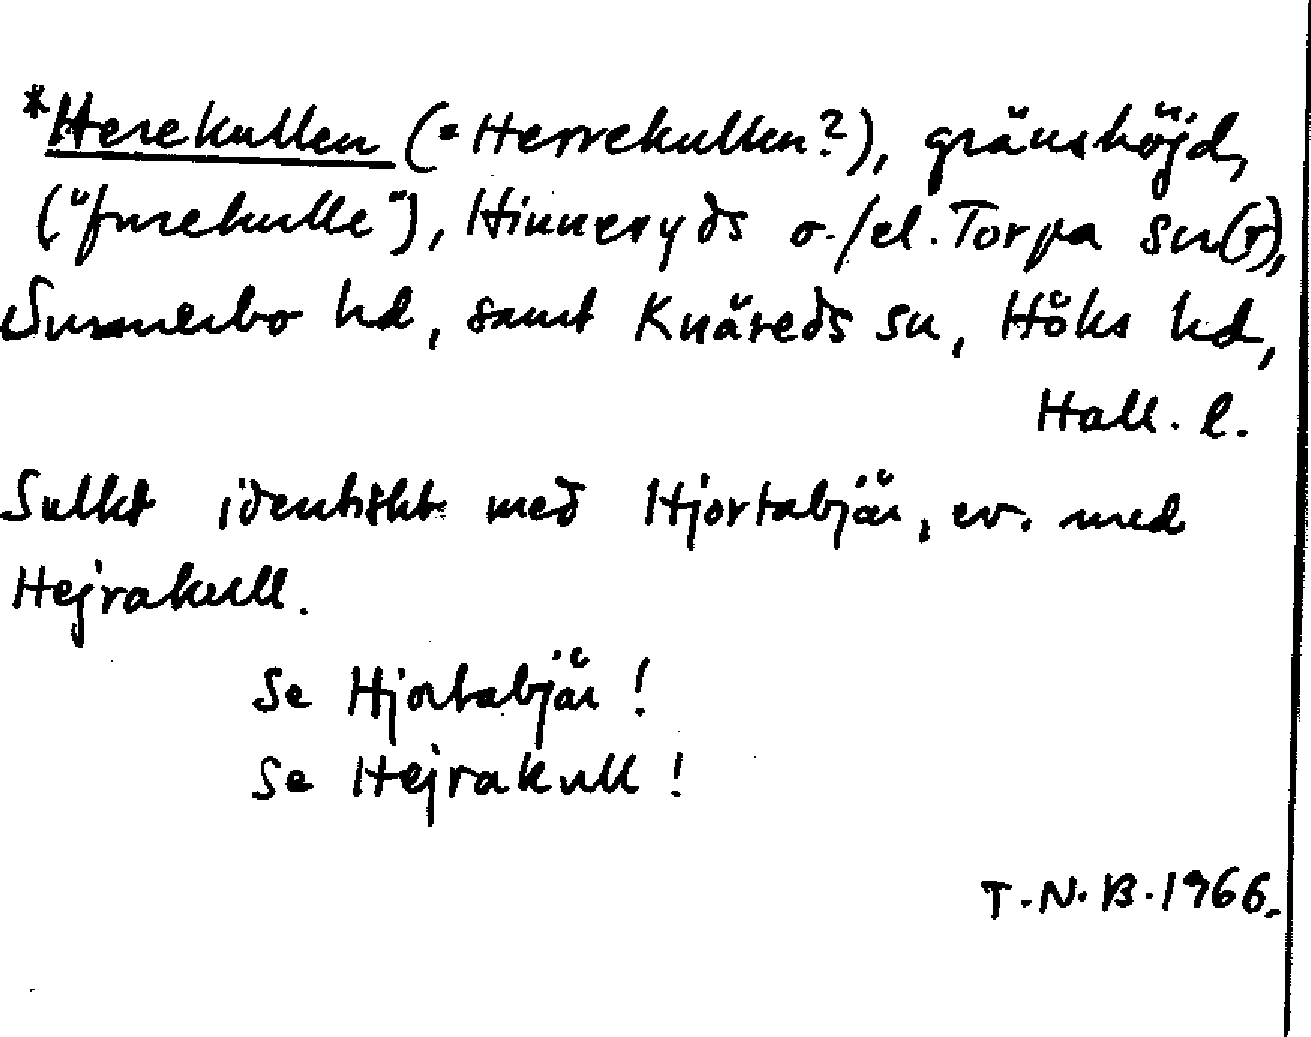 *Herekullen (= Herrekullen?), gränshöjd,
("furekulle"), Hinneryds o./el. Torpa sn(r),
Sunnerbo hd, samt Knäreds sn, Höks hd,
Hall. l.
Sulkt identiskt med Hjortabjär, ev. med
Hejrakull.
Se Hjortabjär!
Se Hejrakull!
T.N.B. 1966.